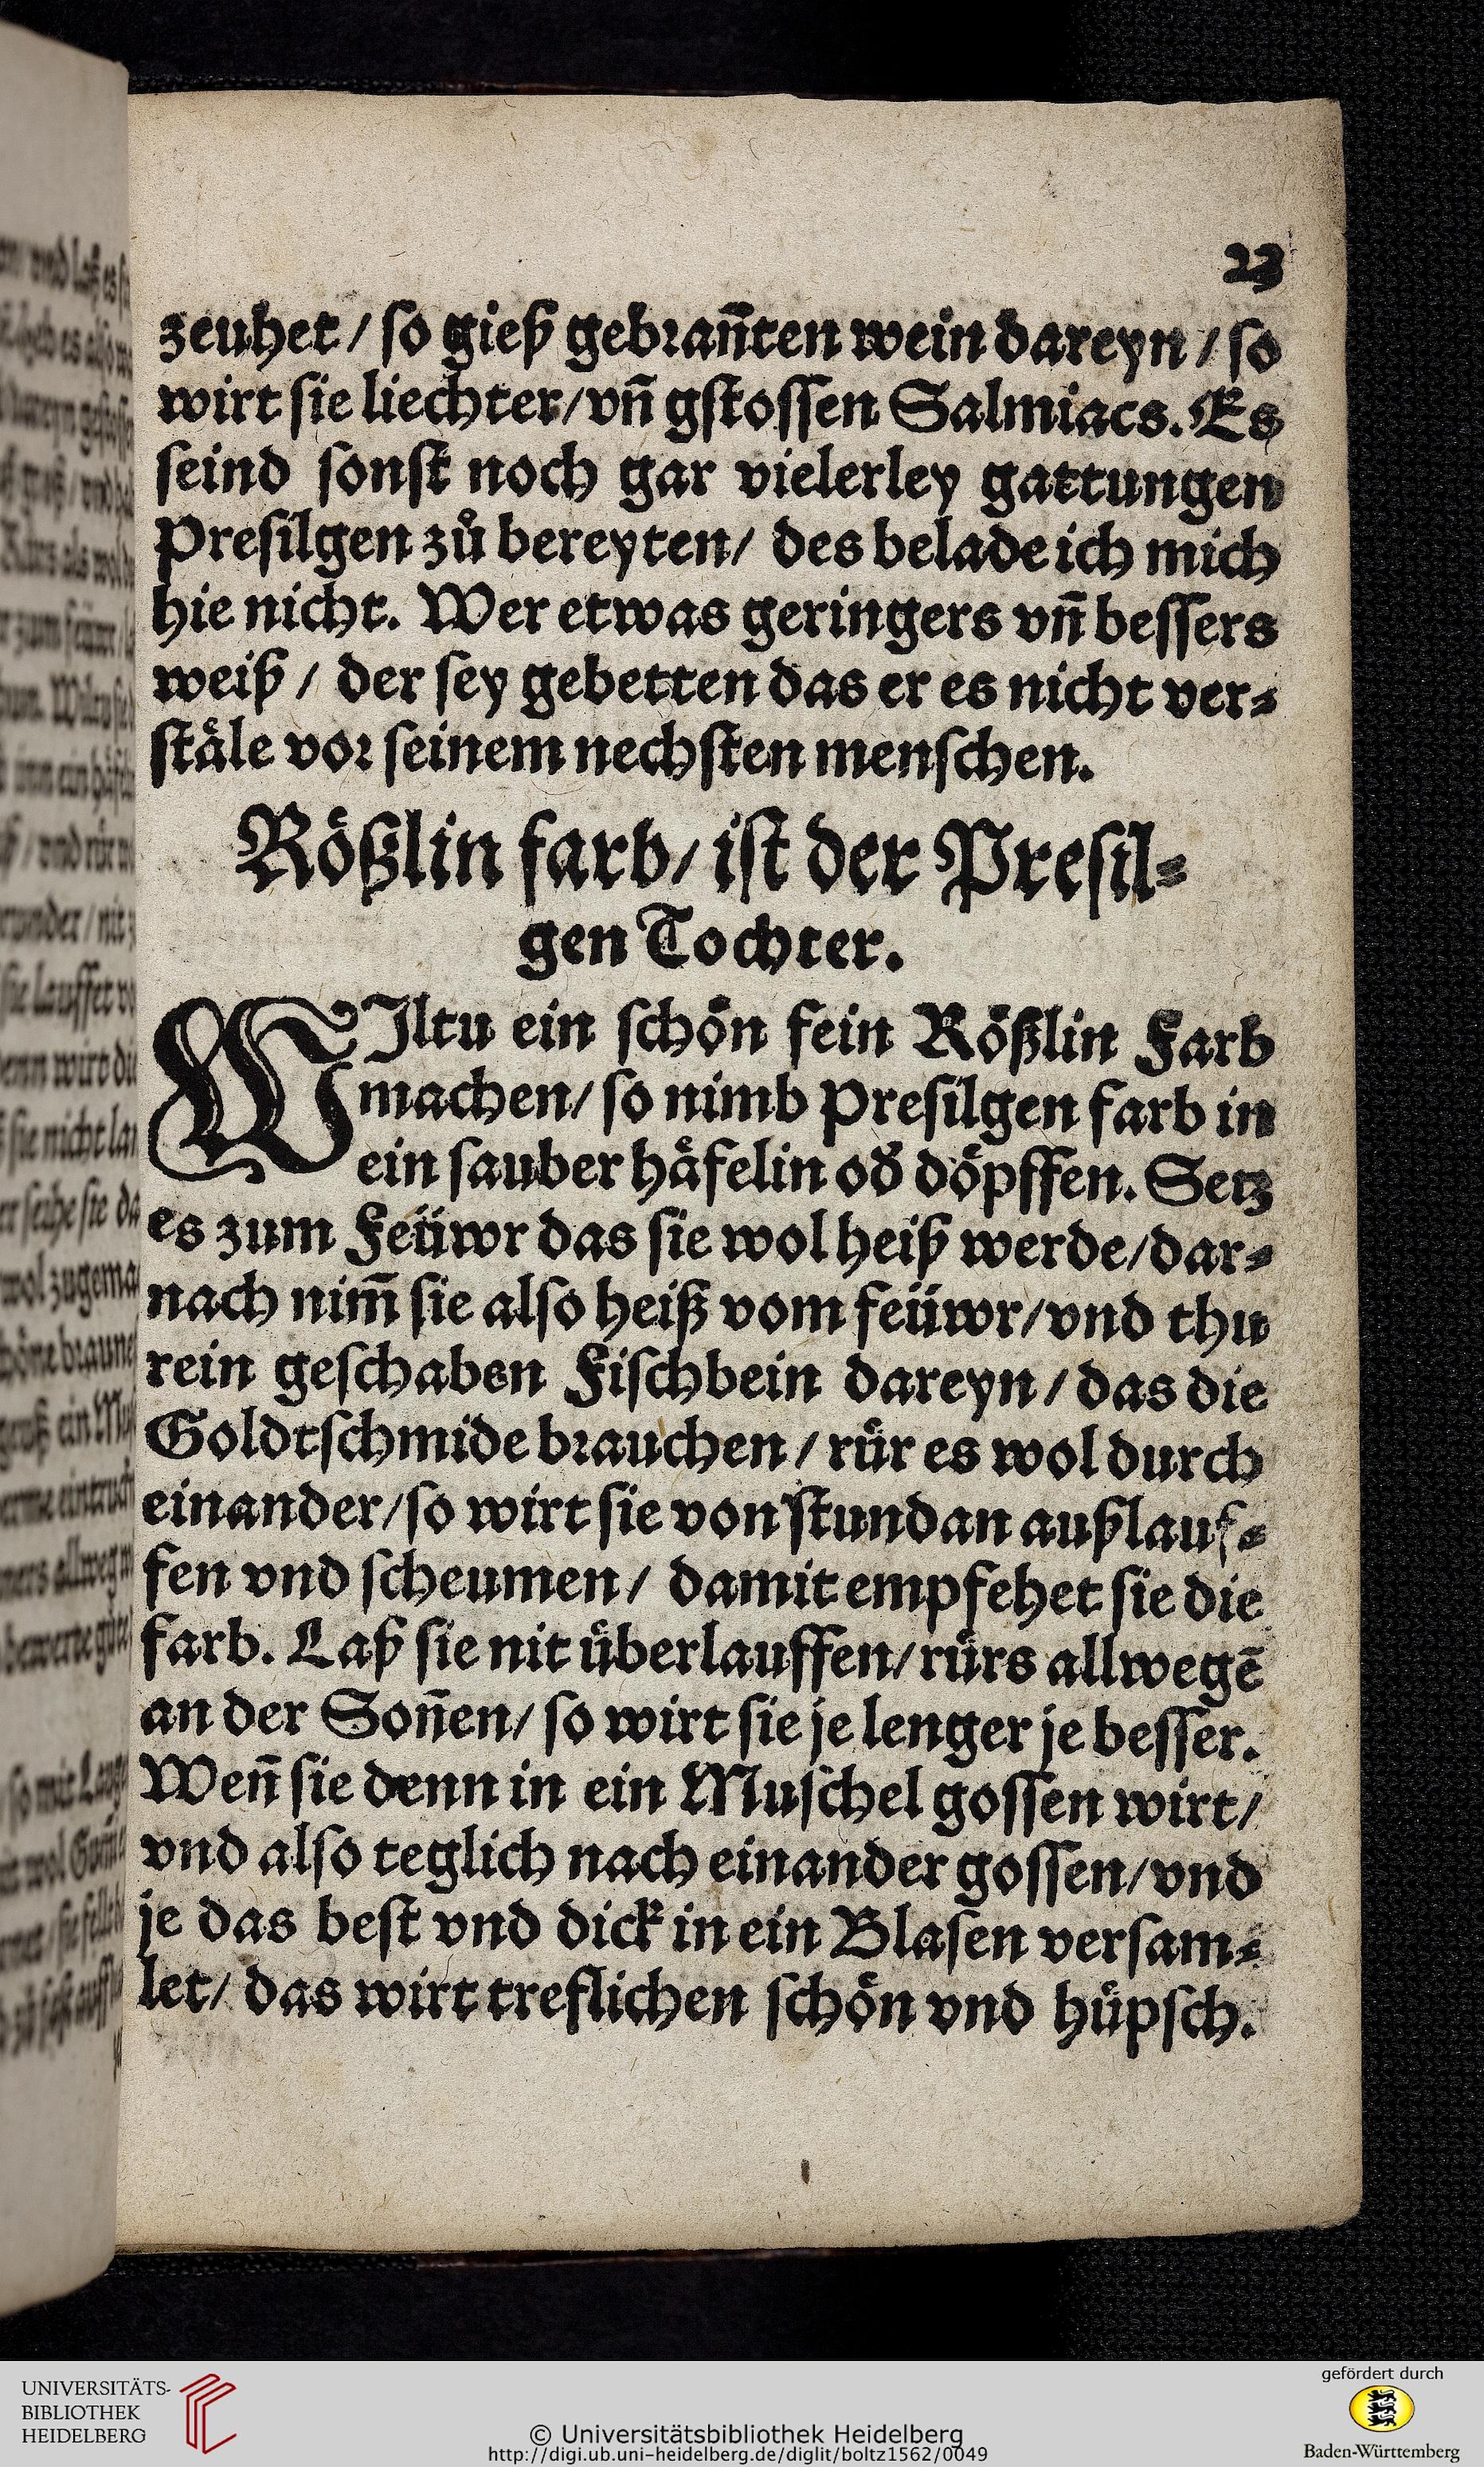 23
zeuhet / so gieß gebꝛañten wein dareyn / so
wirt sie liechter/vñ gstossen Salmiacs. Es
seind sonst noch gar vielerley gattungen
Presilgen zů bereyten/ des belade ich mich
hie nicht. Wer etwas geringers vñ bessers
weiß / der sey gebetten das er es nicht ver⸗
stäle voꝛ seinem nechsten menschen.
Rößlin farb/ ist der Presil⸗
gen Tochter.
WIltu ein schön fein Rößlin Farb
machen/ so nimb Presilgen farb in
ein sauber häfelin oď döpffen. Setz
es zum Feüwr das sie wol heiß werde/dar⸗
nach nim̃ sie also heiß vom feüwr/vnd thu
rein geschaben Fischbein dareyn / das die
Goldtschmide bꝛauchen / rür es wol durch
einander/so wirt sie von stund an außlauf⸗
fen vnd scheumen/ damit empfehet sie die
farb. Laß sie nit überlauffen/rürs allwegẽ
an der Soñen/ so wirt sie je lenger je besser.
Weñ sie denn in ein Muschel gossen wirt/
vnd also teglich nach einander gossen/vnd
je das best vnd dick in ein Blasen versam⸗
let/ das wirt treflichen schön vnd hüpsch.
UNIVERSITÄTS-
BIBLIOTHEK
HEIDELBERG
© Universitätsbibliothek Heidelberg
http://digi.ub.uni-heidelberg.de/diglit/boltz1562/0049
gefördert durch
Baden-Württemberg